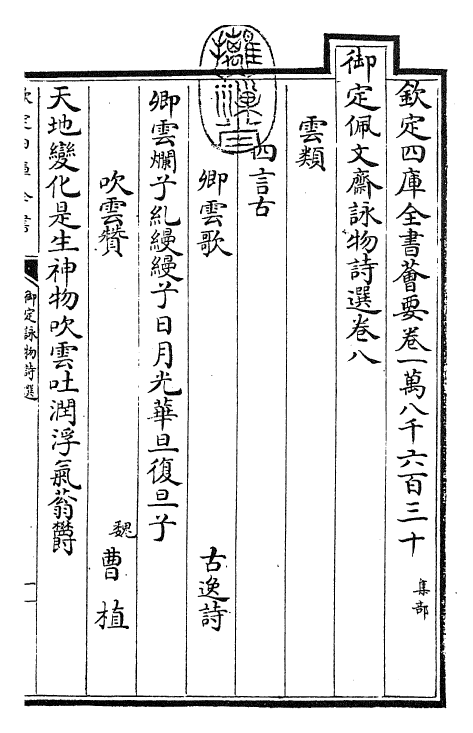 欽定四庫全書薈要卷一萬八千六百三十 集部
御定佩文齋詠物詩選卷八
雲類
四言古
卿雲歌 古逸詩
卿雲爛兮糺縵縵兮日月光華旦復旦兮
吹雲贊 魏 曹植
天地變化是生神物吹雲吐潤浮氣蓊鬱
御定詠物詩選